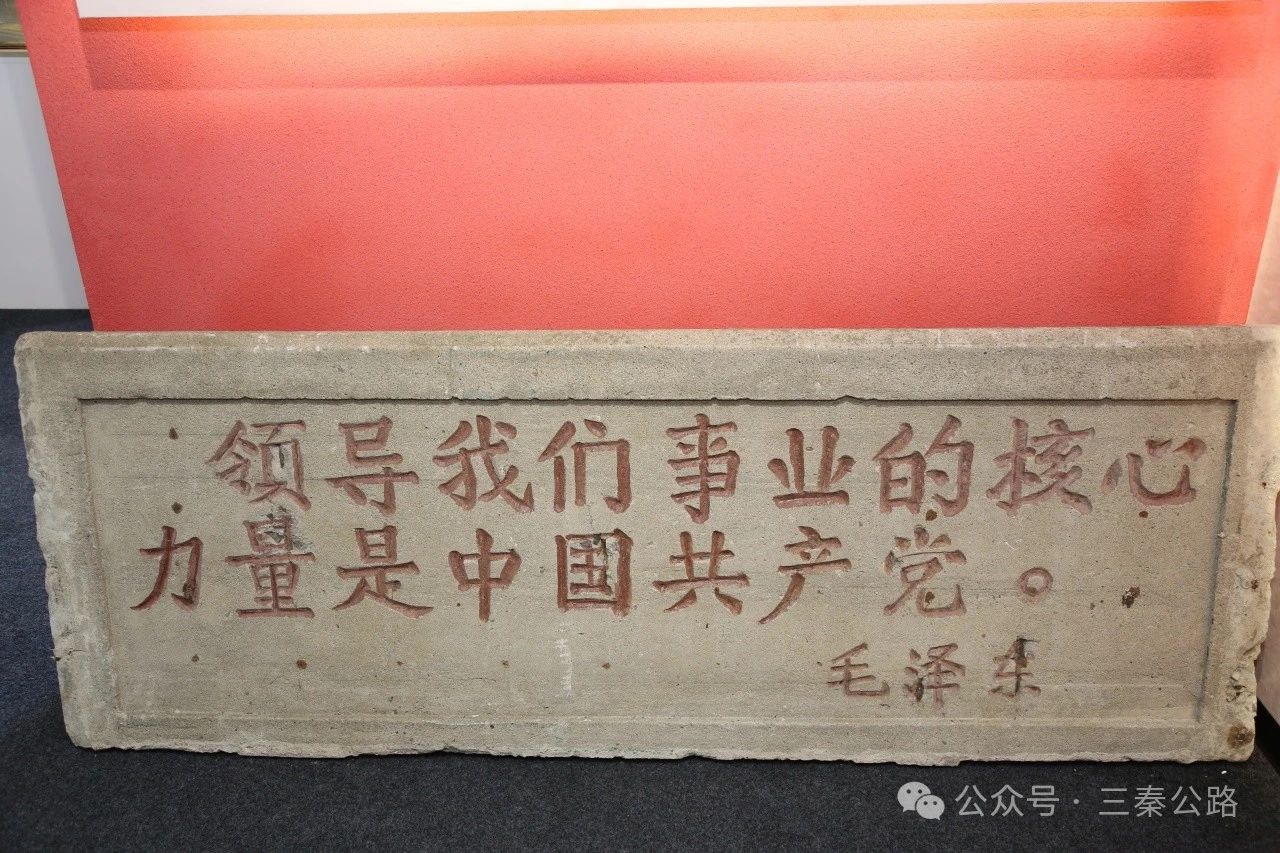 领导我们事业的核心
力量是中国共产党。
毛泽东
公众号·三秦公路